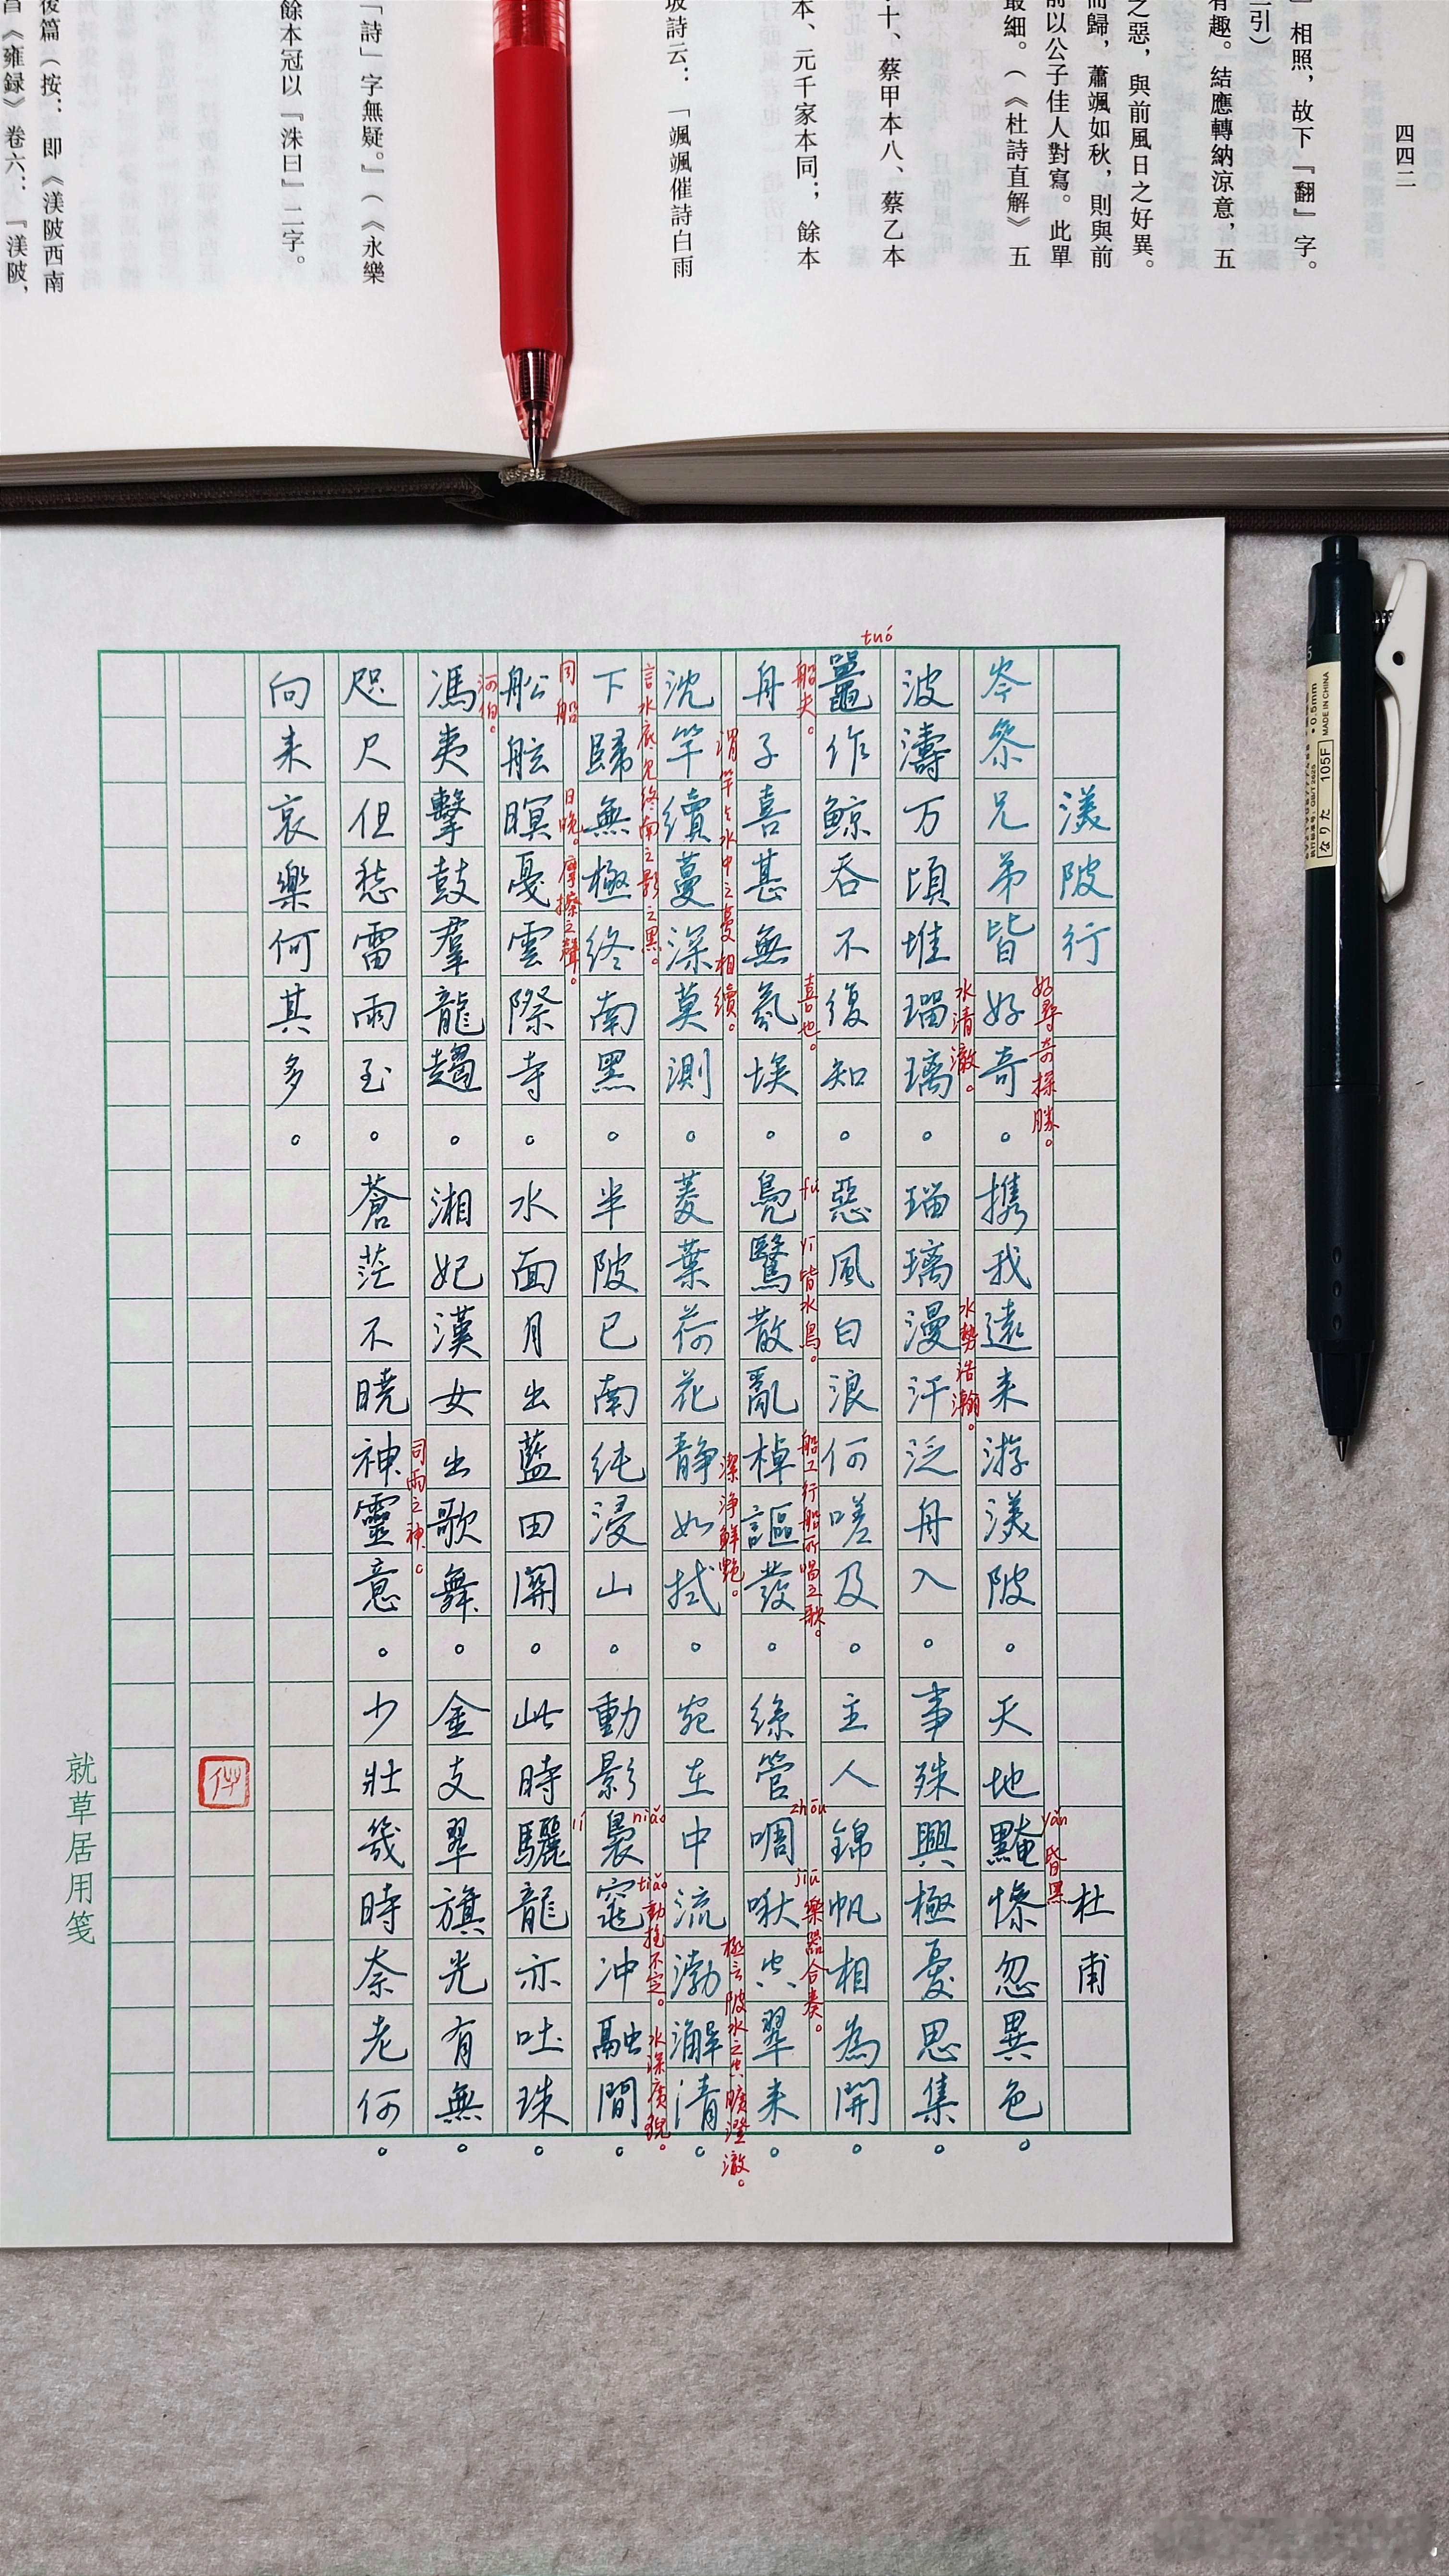 四四二
』相照，故下『翻』字。
二引）
有趣。結應轉納涼意，五
之惡，與前風日之好異。
而歸，蕭颯如秋，則與前
前以公子佳人對寫。此單
最細。（《杜詩直解》五
十、蔡甲本八、蔡乙本
本、元千家本同；餘本
坡詩云：「颯颯催詩白雨
「詩」字無疑。』（《永樂
餘本冠以『洙曰』二字。
後篇（按：即《渼陂西南
昌《雍録》卷六：『渼陂，
渼陂行 杜甫
好尋奇探勝。 yǎn 昏黑
岑參兄弟皆好奇。携我遠来游渼陂。天地黤慘忽異色。
水清澈。 水勢浩瀚。
波濤万頃堆瑠璃。瑠璃漫汗泛舟入。事殊興極憂思集。
tuó
鼉作鯨吞不復知。惡風白浪何嗟及。主人錦帆相為開。
船夫。 喜也。 fú yī 皆水鳥。 船工行船所唱之歌。 zhōu jiū 樂器合奏。
舟子喜甚無氛埃。鳧鷖散亂棹謳發。絲管啁啾空翠来。
謂竿與水中之蔓相續。 潔淨鮮艷。 極言陂水之空曠澄澈。
沈竿續蔓深莫測。菱葉荷花静如拭。宛在中流渤澥清。
言水底見終南之影之黑。 niǎo tiǎo 動搖不定。 水深廣貌。
下歸無極終南黑。半陂已南純浸山。動影裊窕冲融間。
同船 日晚。摩擦之聲。 lí
舩舷暝戛雲際寺。水面月出藍田關。此時驪龍亦吐珠。
河伯。
馮夷擊鼓羣龍趨。湘妃漢女出歌舞。金支翠旗光有無。
司雨之神。
咫尺但愁雷雨至。蒼茫不曉神靈意。少壯幾時奈老何。
向来哀樂何其多。
就草居用笺
なりた 105F
0.5mm
MADE IN CHINA